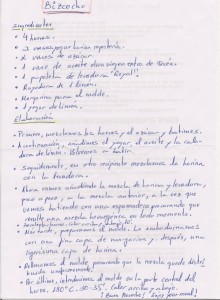 Bizcocho
Ingredientes
• 4 huevos.
• 3 vasos yogur harina repostería.
• 2 vasos de azúcar.
• 1 vaso de aceite oliva virgen extra de
• 1 papeleta de levadura "Royal".
• Rayadura de 1 limón.
• Margarina para el molde.
• 1 yogur de limón.
Elaboración
• Primero, mezclamos los huevos y el azúcar y batimos.
• A continuación, añadimos el yogur, el aceite y la
dura de limón. Volvemos a batir.
• Seguidamente, en otro recipiente mezclamos la harina
con la levadura.
• Ahora vamos añadiendo la mezcla de harina y levadura,
poco a poco, a la mezcla anterior, a la vez que
vamos batiendo con una espumadera procurando que
resulte una mezcla homogénea en todo momento.
preparamos el molde. Lo embadurnamos
con una fina capa de margarina y, después, una
ligerísima capa de harina.
• Rellenamos el molde procurando que la mezcla quede distri-
buida uniformemente.
• Por último, introducimos el molde en la parte central del
horno. 180°C. 30-35'. Calor arriba y abajo.